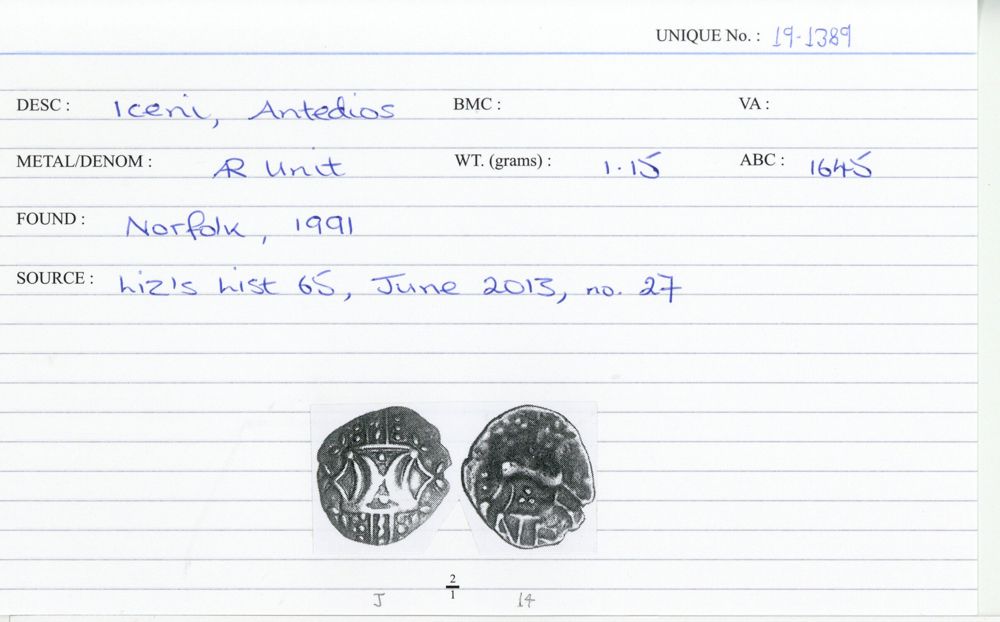 UNIQUE No. : 19-1389
DESC : Iceni, Antedios BMC : VA :
METAL/DENOM : AR Unit WT. (grams) : 1.15 ABC : 1645
FOUND : Norfolk, 1991
SOURCE : Liz's List 65, June 2013, no. 27
2
1
J 14